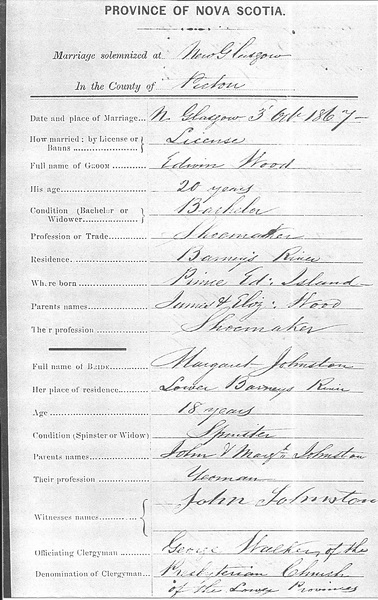 PROVINCE OF NOVA SCOTIA.
Marriage solemnized at New Glasgow
In the County of Pictou
Date and place of Marriage... N. Glasgow 3d Oct. 1867-
How married; by License or Banns } License
Full name of GROOM Edwin Wood
His age 20 years
Condition (Bachelor or Widower } Bacheler
Profession or Trade Shoemaker
Residence Barney's River
Where born Prince Ed: Island
Parents names James & Eliz: Wood
Their profession Shoemaker
Full name of BRIDE Margaret Johnston
Her place of residence Lower Barneys River
Age 18 years
Condition (Spinster or Widow) Spinster
Parents names John & Margt. Johnston
Their profession Yeoman
Witnesses names { John Johnston
Officiating Clergyman George Walker, of the
Denomination of Clergyman Presbyterian Church
of the Lower Provinces